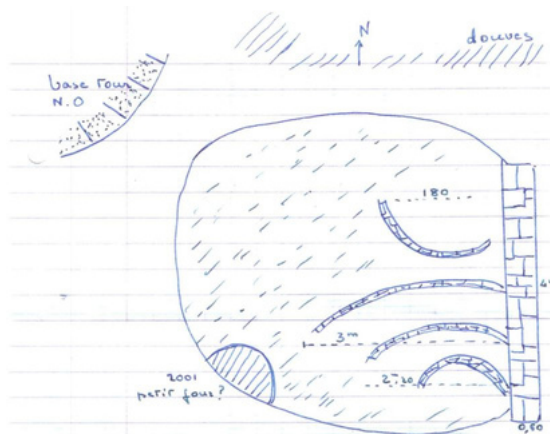 N
douves
base Tour
N.O
180
3m
2m20
2001
petit four?
0,60